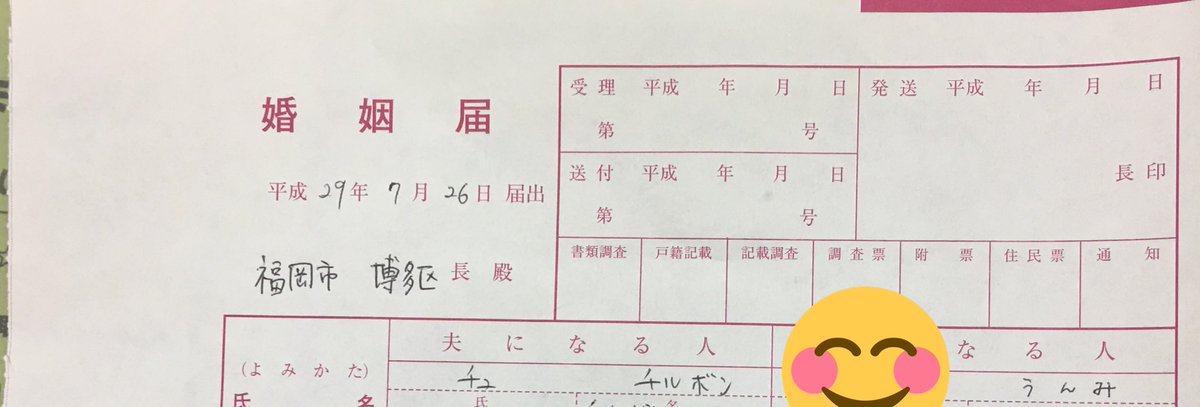 婚姻届
平成 29年 7月 26日 届出
福岡市 博多区 長 殿
受理 平成 年 月 日
第 号
送付 平成 年 月 日
第 号
発送 平成 年 月 日
長印
書類調査 戸籍記載 記載調査 調査票 附票 住民票 通知
夫になる人
なる人
(よみかた)
チュ チルボン
うんみ
氏名
氏 名